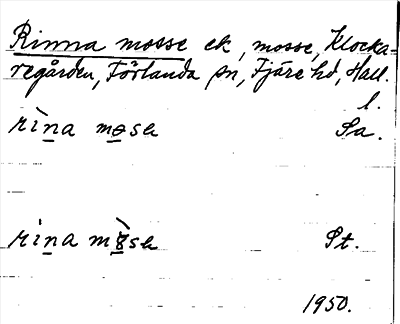 Rinna mosse ek, mosse, Klocka-
regården, Förlanda sn, Fjäre hd, Hall.
l.
rìna mɵse Sa.
rina mòse St.
1950.